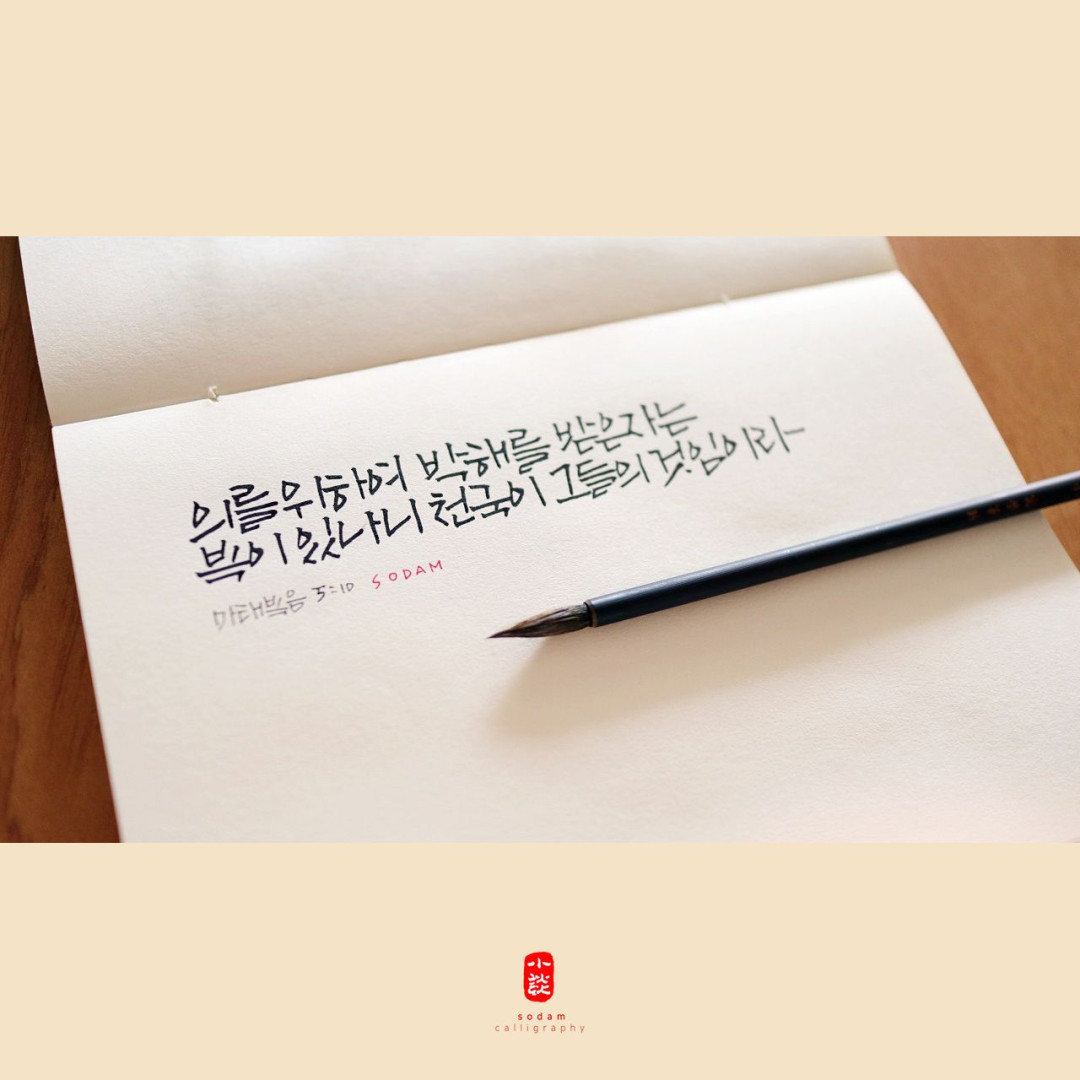 의를위하여 박해를 받은자는
복이있나니 천국이 그들의것임이라
마태복음 5:10 SODAM
小談
sodam
calligraphy